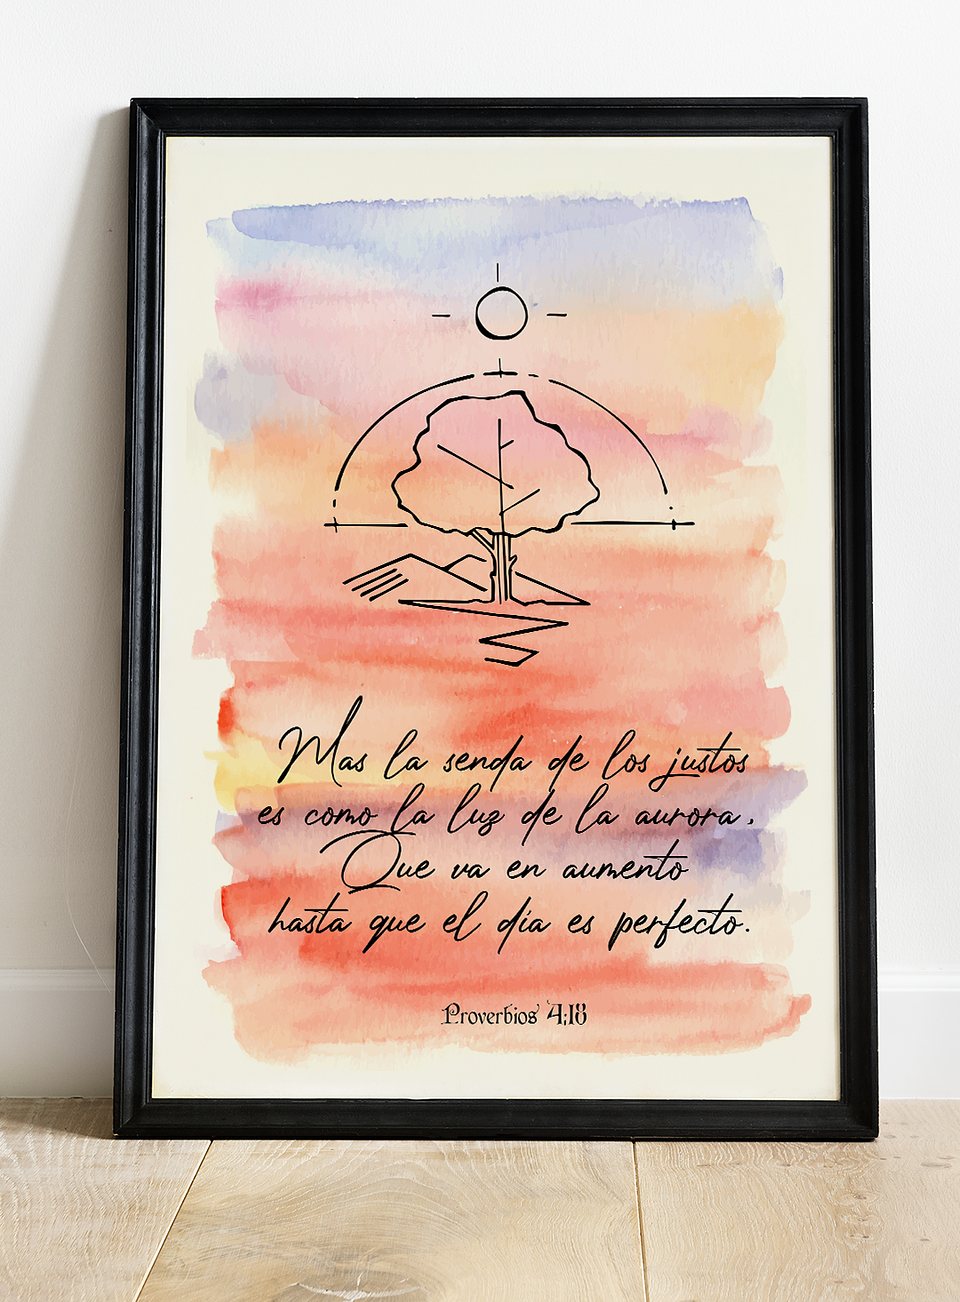 Mas la senda de los justos
es como la luz de la aurora,
Que va en aumento
hasta que el día es perfecto.
Proverbios 4:18